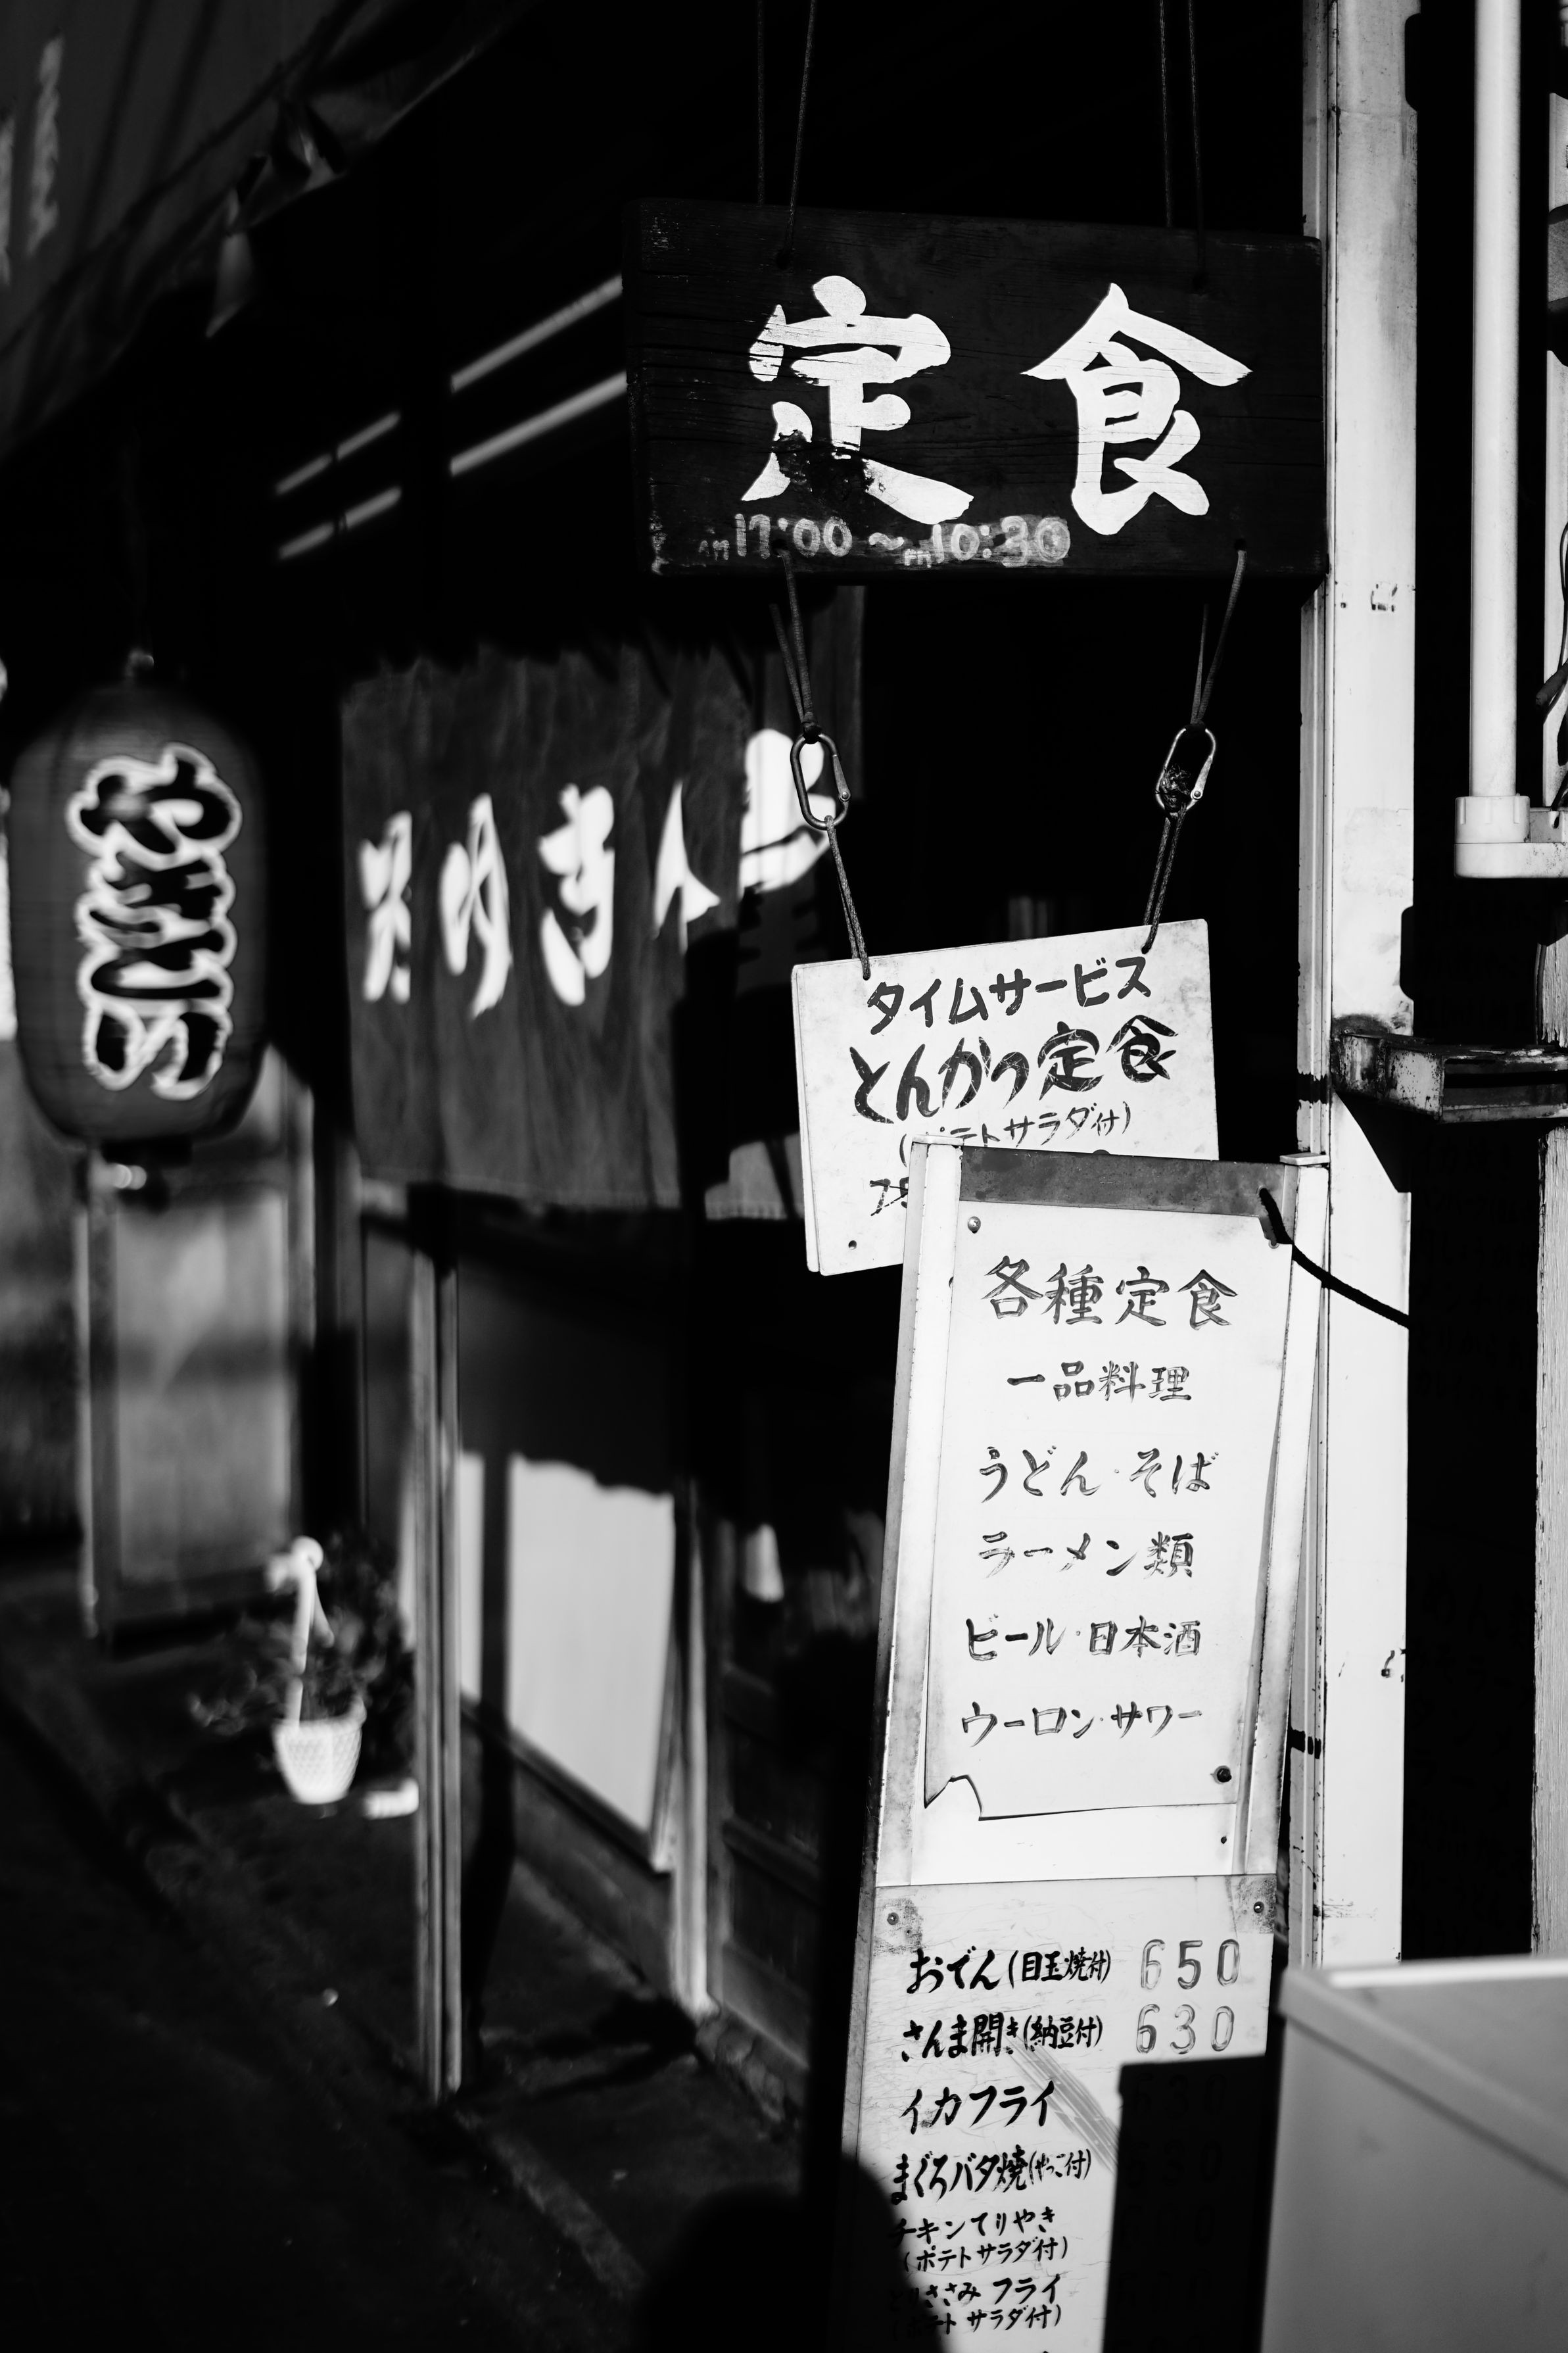 定食
AM 11:00 〜 PM 10:30
タイムサービス
とんかつ定食
(ポテトサラダ付)
各種定食
一品料理
うどん・そば
ラーメン類
ビール・日本酒
ウーロン・サワー
おでん(目玉焼付) 650
さんま開き(納豆付) 630
イカフライ 630
まぐろバタ焼(やっこ付)
チキンてりやき
(ポテトサラダ付)
とりささみフライ
(ポテトサラダ付)